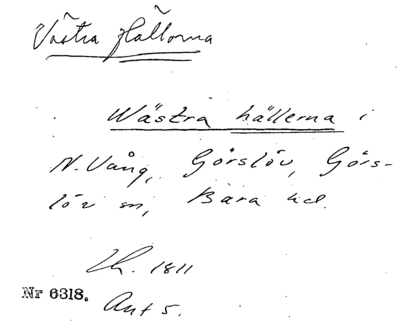 Västra Hällorna
Wästra hällerna i
N. Vång, Görslöv, Görs-
löv sn, Bara hd.
Lh. 1811
Nr 6318.
Ant 5.